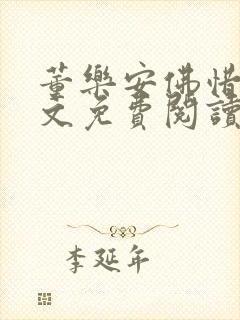 董樂安佛惜
文免費閱讀
李延年